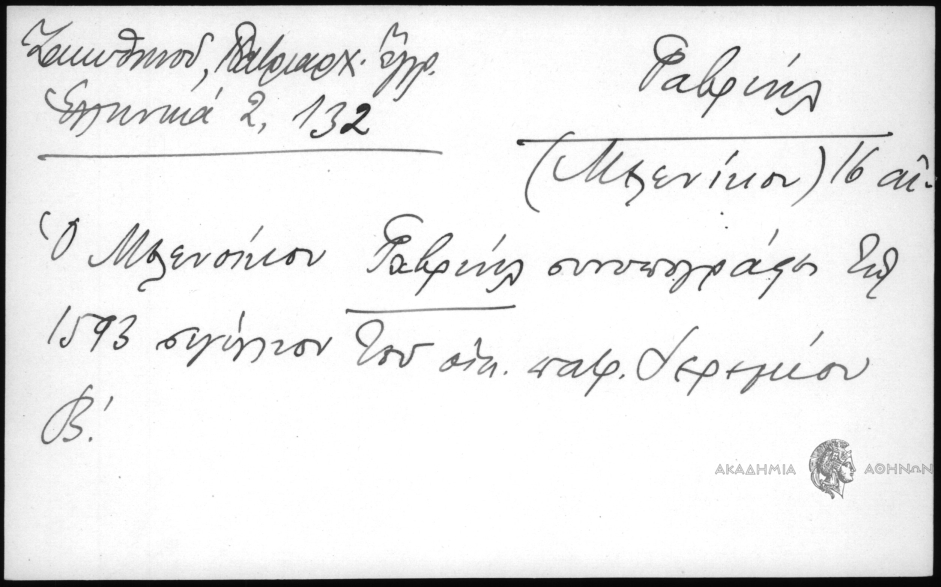 Ζακυθηνοῦ, Πατριαρχ. ἔγγρ.
Ἑλληνικά 2, 132
Γαβριήλ
(Μελενίκου) 16 αἰ.
Ὁ Μελενοίκου Γαβριήλ συνυπογράφει τῷ
1593 σιγίλλιον τοῦ οἰκ. πατρ. Ἱερεμίου
Β΄.
ΑΚΑΔΗΜΙΑ ΑΘΗΝΩΝ